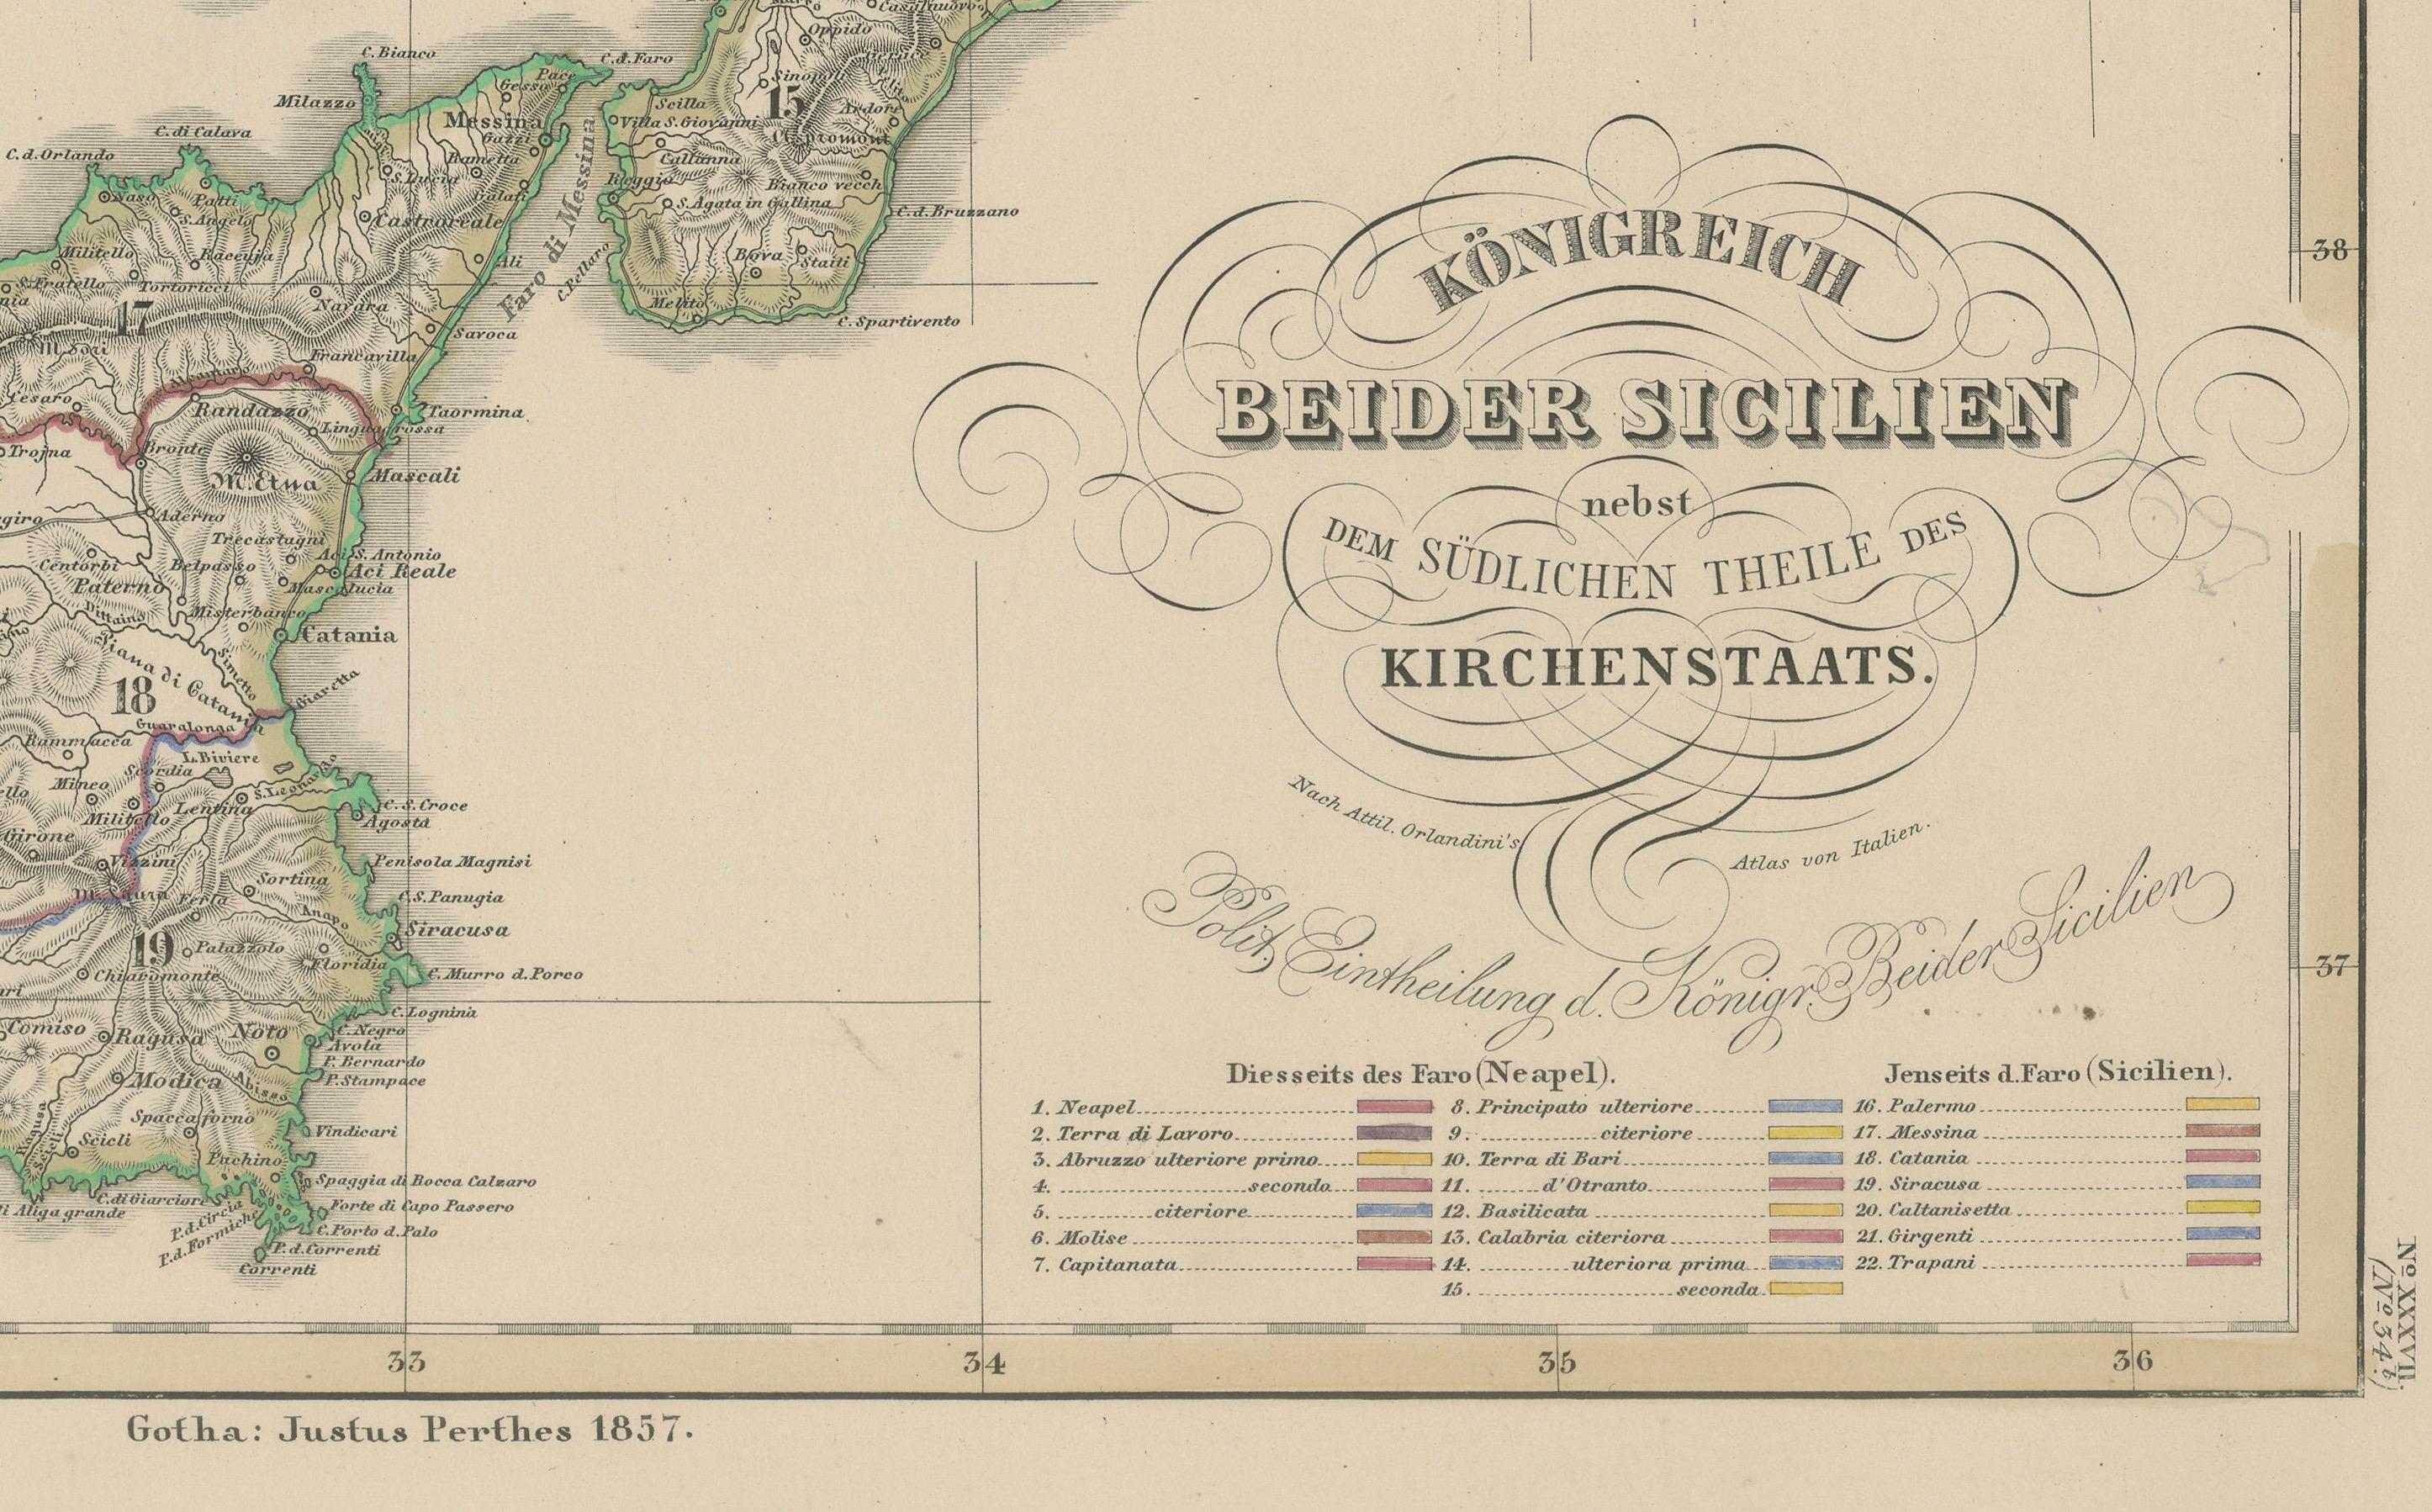 C. Bianco
C. d. Faro
Oppido
Casalnuovo
Pace
Gesso
Sinopoli
Milazzo
Scilla
15
Ardore
Messina
Villa S. Giovanni
C. di Calava
Gazzi
C. d. Orlando
Rametta
Callanna
S. Lucia
Reggio
Bianco vecch
Naso
Patti
Galati
S. Agata in Gallina
S. Angelo
Castroreale
C. d. Bruzzano
Faro di Messina
Militello
Raccuja
Ali
C. Pellaro
Bova
Staiti
S. Fratello
Tortorici
Novara
Melito
17
C. Spartivento
Savoca
M. Sori
Francavilla
Cesaro
Randazzo
Taormina
Linguagrossa
Trojna
Bronte
M. Etna
Mascali
Aderno
Trecastagni
Centorbi
Belpasso
Aci S. Antonio
Aci Reale
Paterno
Mascalucia
Dittaino
Misterbanco
Catania
Piana di Catania
Simetto
Giaretta
18
Guaralonga
Rammacca
L. Biviere
Scordia
Mineo
S. Leonardo
Lentina
C. S. Croce
Militello
Agosta
Girone
Vizzini
Penisola Magnisi
Sortina
M. Laura
Ferla
C. S. Panugia
Anapo
Siracusa
19
Palazzolo
Floridia
Chiaromonte
C. Murro d. Porco
C. Lognina
Comiso
Ragusa
Noto
C. Negro
Avola
P. Bernardo
Modica
Abisso
P. Stampace
Spaccaforno
Vindicari
Ragusa
Scicli
Scicli
Pachino
Spaggia di Rocca Calzaro
C. di Giarciore
Forte di Capo Passero
di Aliga grande
P. d. Circia
P. d. Formiche
C. Porto d. Palo
P. d. Correnti
Correnti
KÖNIGREICH
BEIDER SICILIEN
nebst
DEM SÜDLICHEN THEILE DES
KIRCHENSTAATS.
Nach Attil. Orlandini's Atlas von Italien.
Polit. Eintheilung d. Königr. Beider Sicilien
Diesseits des Faro (Neapel).
1. Neapel
2. Terra di Lavoro
3. Abruzzo ulteriore primo
4. secondo
5. citeriore
6. Molise
7. Capitanata
8. Principato ulteriore
9. citeriore
10. Terra di Bari
11. d'Otranto
12. Basilicata
13. Calabria citeriora
14. ulteriora prima
15. seconda
Jenseits d. Faro (Sicilien).
16. Palermo
17. Messina
18. Catania
19. Siracusa
20. Caltanisetta
21. Girgenti
22. Trapani
38
37
33
34
35
36
Nº XXXVII
(Nº 34b.)
Gotha: Justus Perthes 1857.